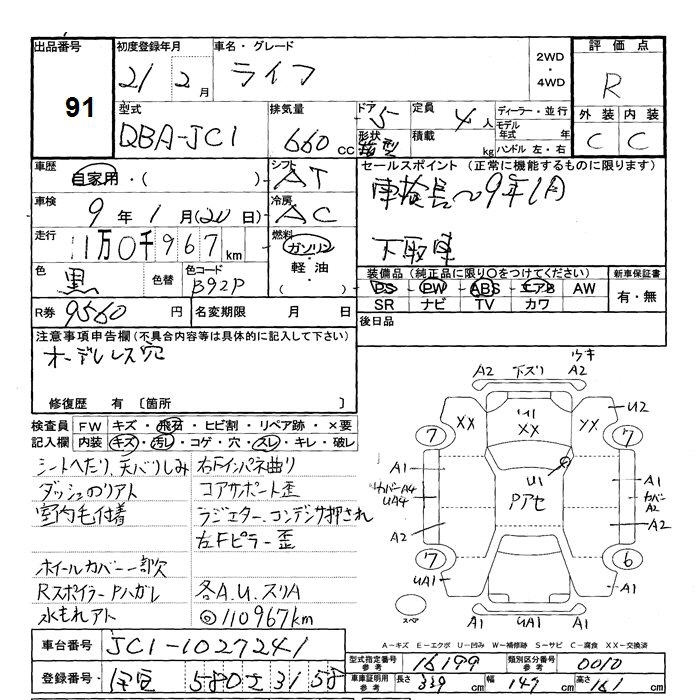 出品番号
91
初度登録年月
21 2月
車名・グレード
ライフ
2WD
・
4WD
評価点
R
外装 内装
C C
型式
QBA-JC1
排気量
660cc
ドア
5
形状
箱型
定員
4人
積載
kg
ディーラー・並行
モデル年式 年
ハンドル 左・右
車歴
自家用・( )
シフト
AT
セールスポイント (正常に機能するものに限ります)
車検長〜9年1月
下取車
車検
9年 1月(20日)
冷房
AC
走行
11万0千967km
燃料
ガソリン
・
軽・油
( )
色
黒
色替
色コード
B92P
装備品 (純正品に限り○をつけてください)
PS PW ABS エアB AW
SR ナビ TV カワ
新車保証書
有・無
R券 9560円
名変期限 月 日
後日品
注意事項申告欄(不具合内容等は具体的に記入して下さい)
オーデレス穴
修復歴 有 〔箇所 〕
検査員記入欄
FW キズ・飛石・ヒビ割・リペア跡・×要
内装 キズ・汚レ・コゲ・穴・スレ・キレ・破レ
シートヘたり、天バリしみ
ダッシュのリアト
室内毛付着
ホイールカバー一部欠
Rスポイラー Pハガレ
水もれアト
右Fインパネ曲り
コアサポート歪
ラジエター、コンデンサ押され
左Fピラー歪
各A.U.スリA
◎110967km
A2 下ズリ A2 ウキ
XX U1 XX YY U2
7 7
A1 U1 A1
カバーA4 UA4 Pアセ カバー A2
A2 A2
7 6
UA1 A1
A1 UA1 A1
スペア
A-キズ E-エクボ U-凹み W-補修跡 S-サビ C-腐食 XX-交換済
車台番号 JC1-1027241
登録番号 伊豆 580 さ 3158
型式指定番号 参考 16199
類別区分番号 参考 0010
車庫証明用 参考 長さ 339cm 幅 147cm 高さ 161cm